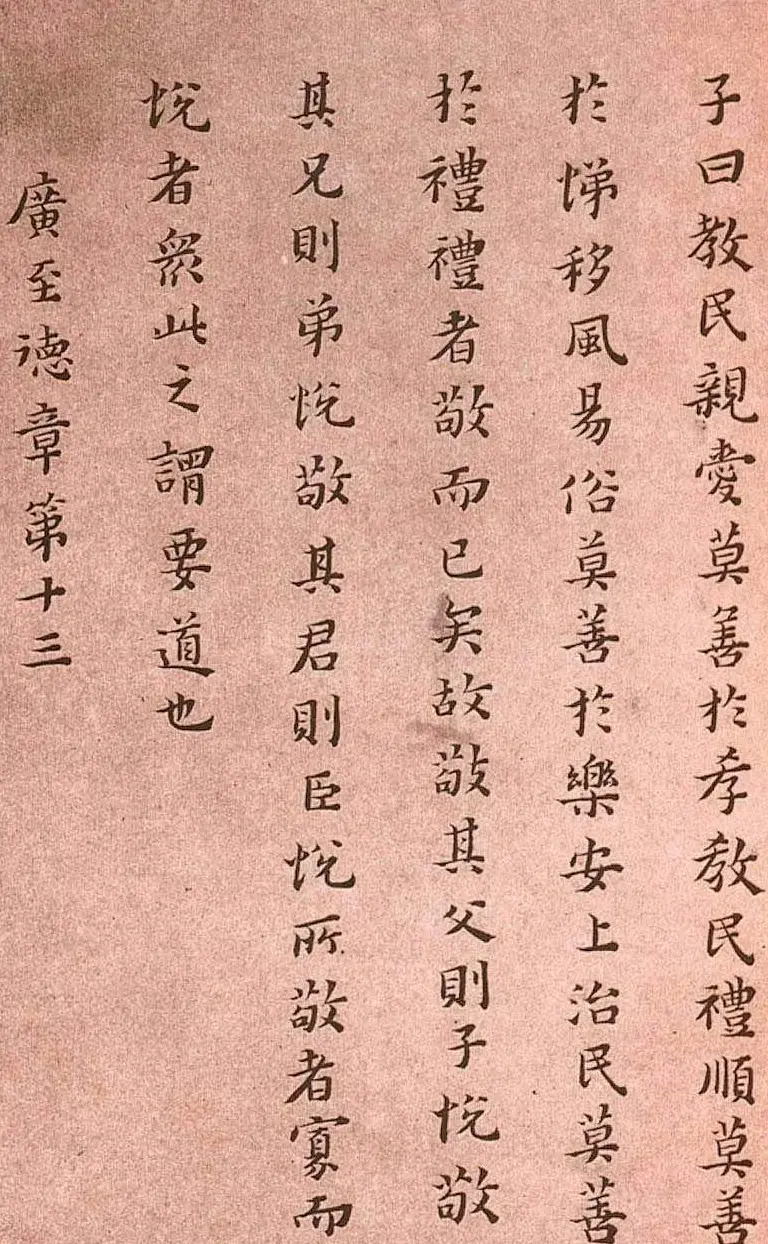 子曰教民親愛莫善於孝教民禮順莫善
於悌移風易俗莫善於樂安上治民莫善
於禮禮者敬而已矣故敬其父則子悅敬
其兄則弟悅敬其君則臣悅所敬者寡而
悅者眾此之謂要道也
廣至德章第十三